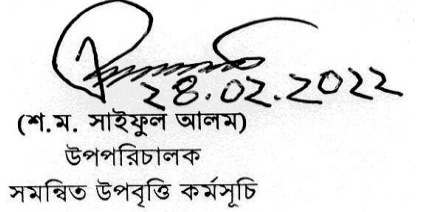 28.02.2022
(শ.ম. সাইফুল আলম)
উপপরিচালক
সমন্বিত উপবৃত্তি কর্মসূচি